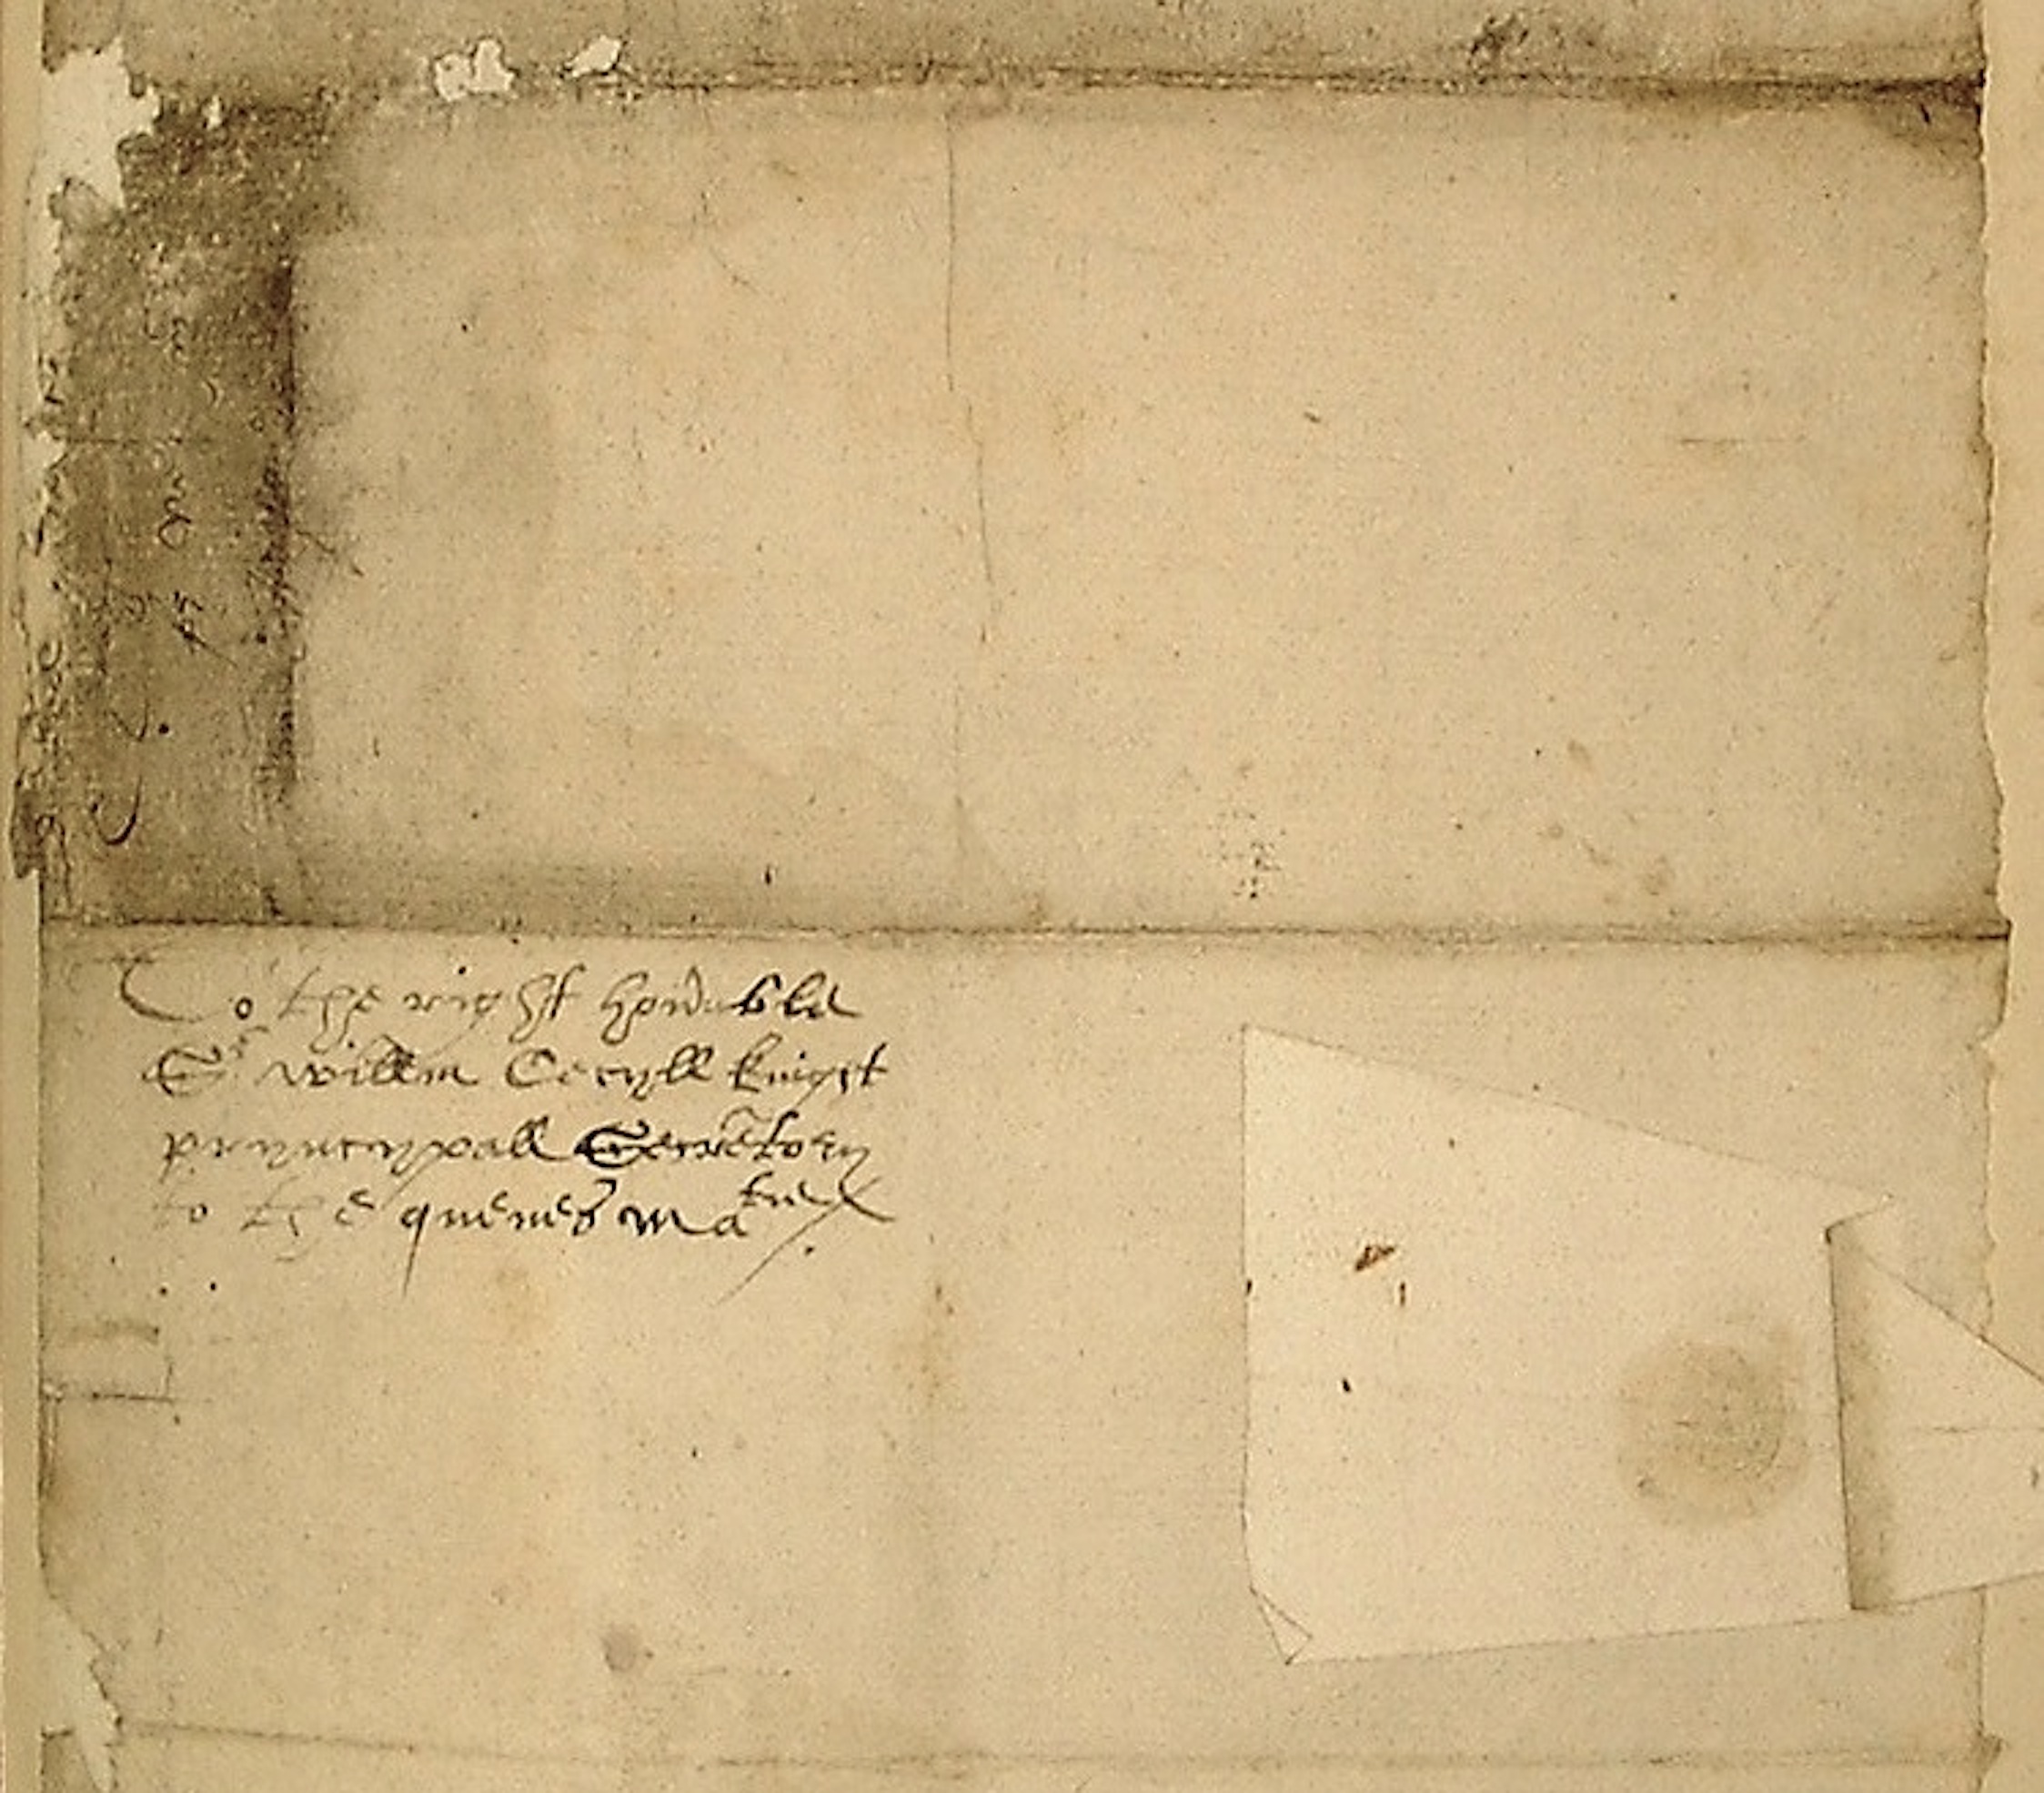 To the right honorable
Sr Willm Cecyll knight
pryncypall Secretory
to the quenes matie